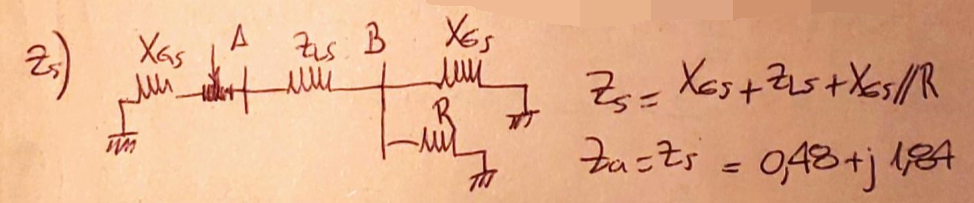 Zs)
XGs A ZLs B XGs
R
Zs = XGs + ZLs + XGs//R
Za = Zs = 0,48 + j 1,84